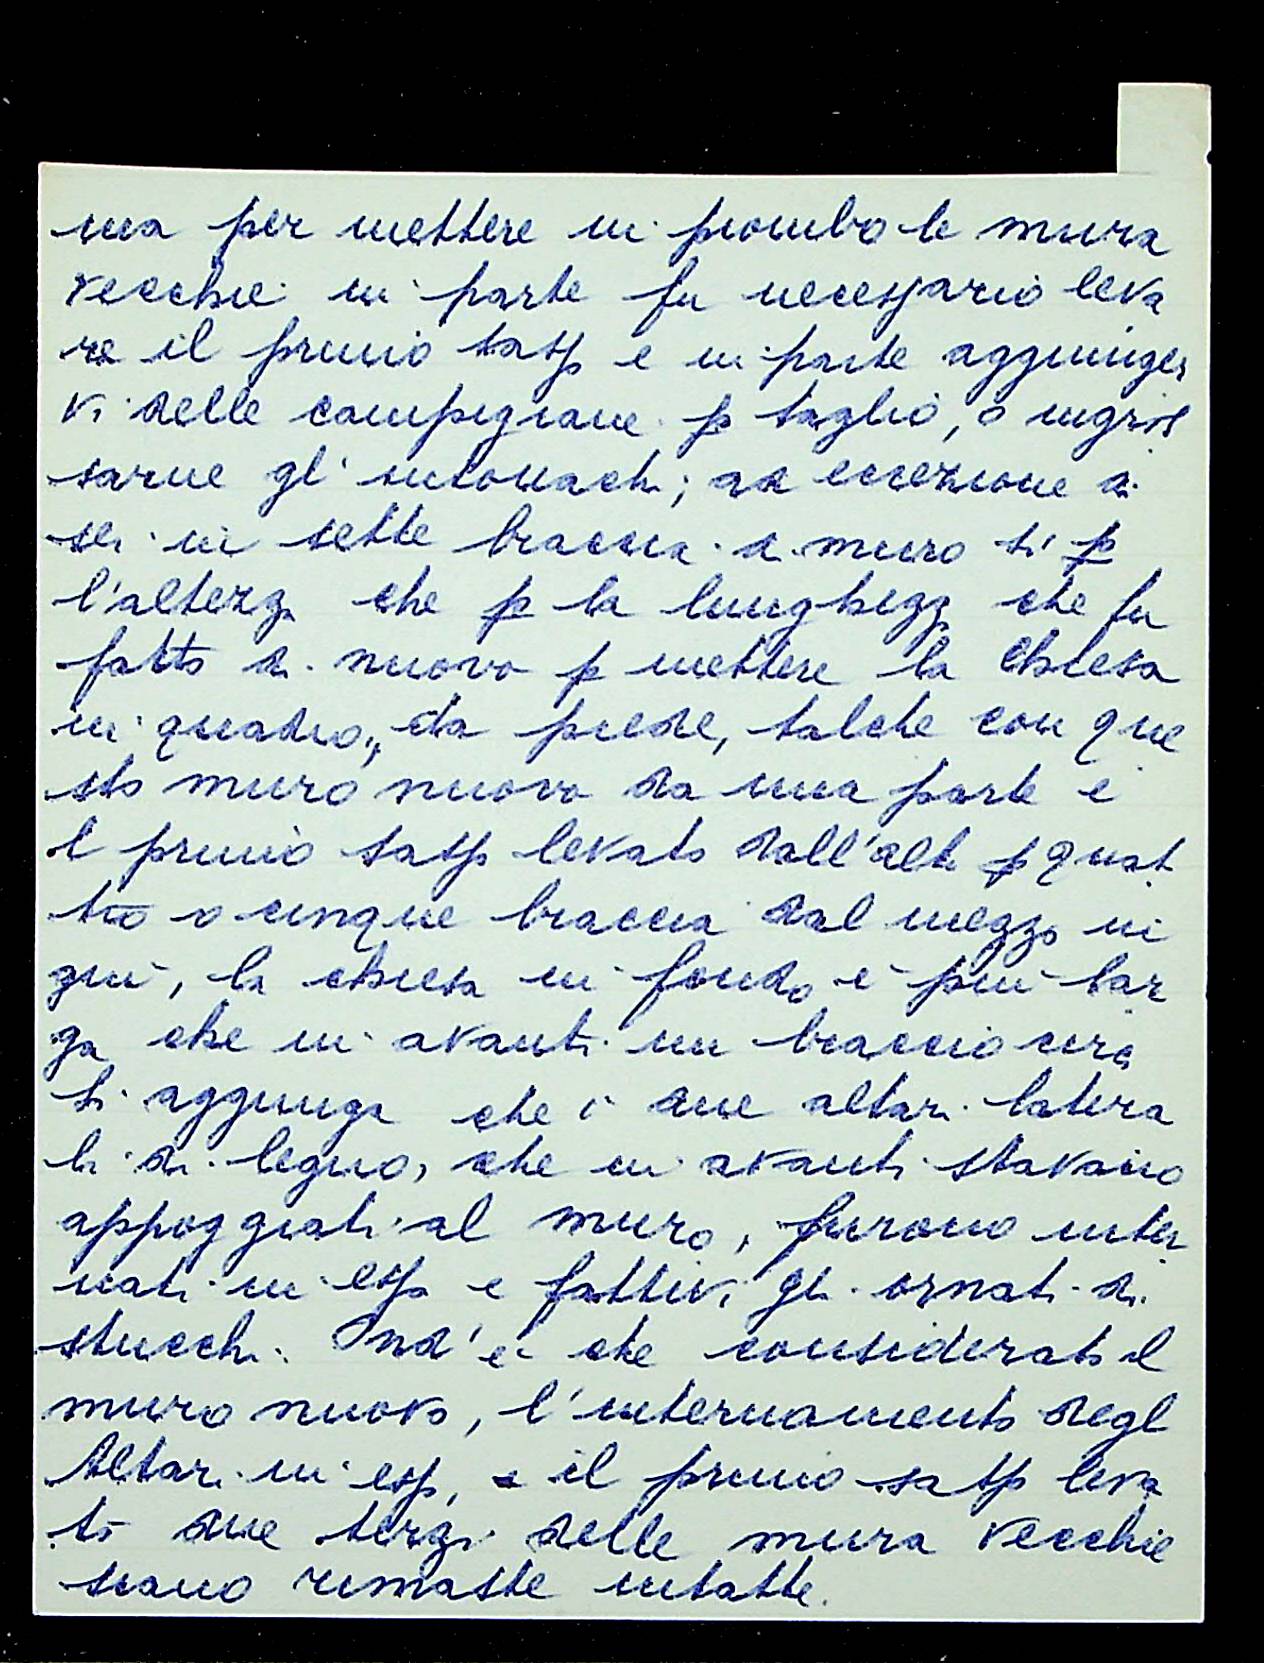 ma per mettere in piombo le mura
vecchie in parte fu necessario leva
re il primo sasso e in parte aggiunger
vi delle campigiane p taglio, o ingros
sarne gl'intonachi; ad eccezione di
sei in sette braccia di muro sì p
l'altezza che p la lunghezza che fu
fatto di nuovo p mettere la Chiesa
in quadro, da piede, talche con que
sto muro nuovo da una parte e
l primo sasso levato dall'alt p quat
tro o cinque braccia dal mezzo in
giù, la chiesa in fondo è più lar
ga che in avanti un braccio circa
si aggiunga che i due altari latera
li di legno, che in avanti stavano
appoggiati al muro, furono inter
nati in esso e fattivi gli ornati di
stucchi. Ond'è che considerato il
muro nuovo, l'internamento degl
Altari in esso, e il primo sasso leva
to due terzi delle mura vecchie
siano rimaste intatte.